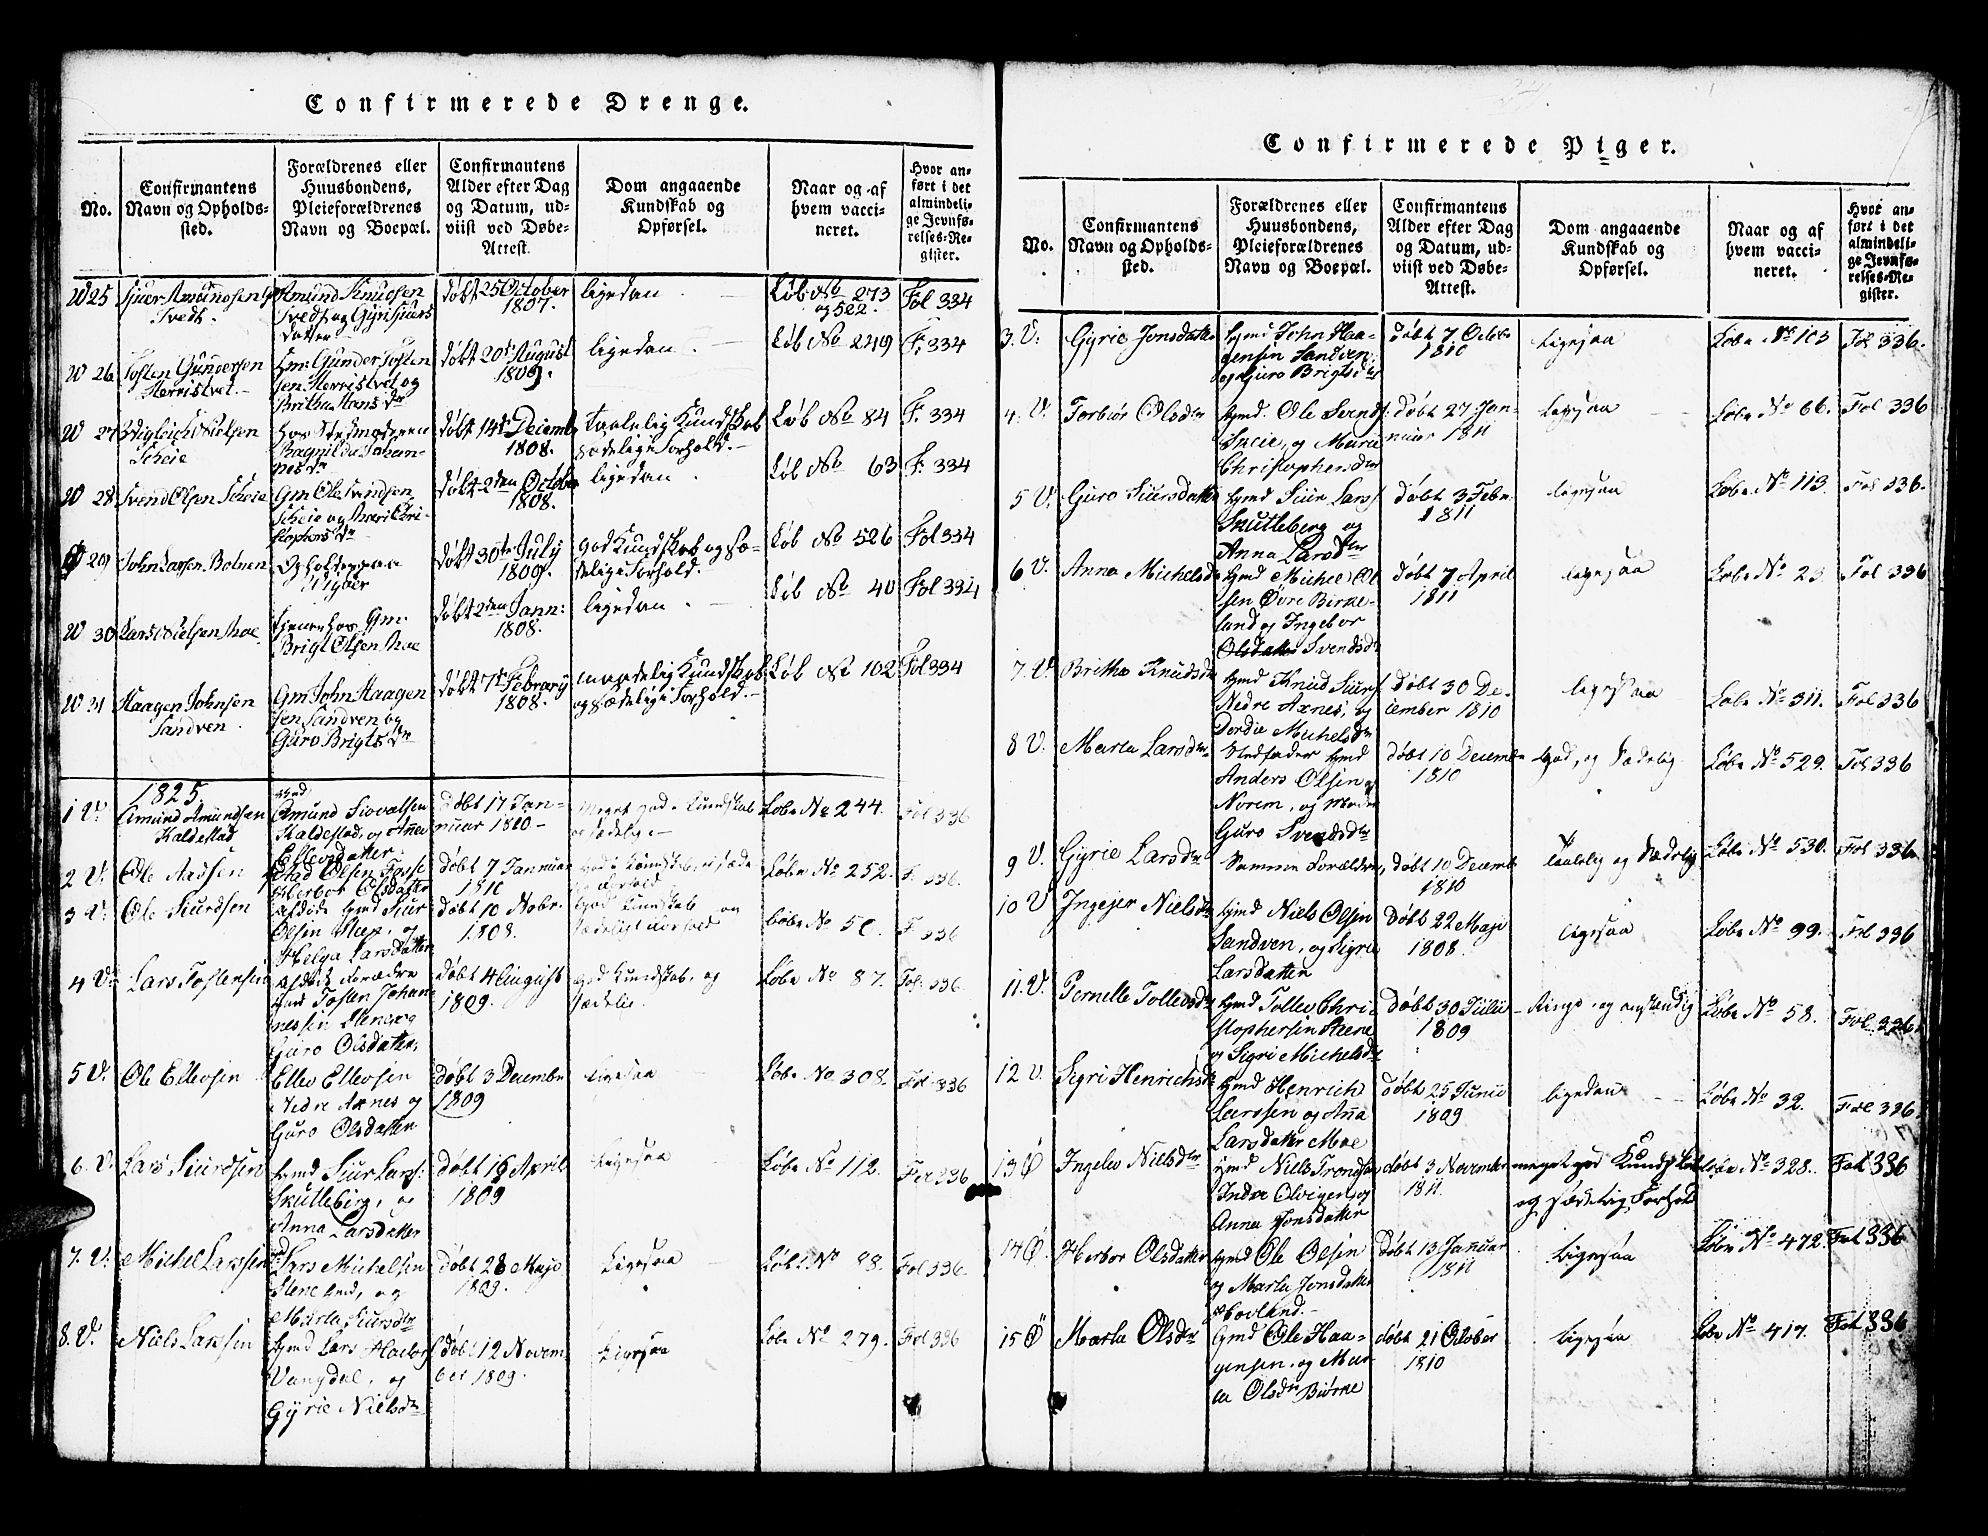 Confirmerede Drenge.
No.
Confirmantens
Navn og Opholds-
sted.
Forældrenes eller
Huusbondens,
Pleieforældrenes
Navn og Boepæl.
Confirmantens
Alder efter Dag
og Datum, ud-
viist ved Døbe-
Attest.
Dom angaaende
Kundskab og
Opførsel.
Naar og af
hvem vacci-
neret.
Hvor an-
ført i det
almindeli-
ge Jevnfø-
relses-Re-
gister.
W 25
Sjuer Amundsen
Tvedt.
Amund Knudsen
Tvedt og Gyri Sjuers
datter
døbt 25 October
1807.
ligedan
Løb No 273
og 522.
Fol 334
W 26
Tosten Gundersen
Herristvet
Gm: Gunder Tosten
sen Herristvet og
Britha Hans dr
døbt 20de August
1809.
ligedan
Løb No 249
F. 334
W 27
Nielsen
Scheie
hos Stedmoderen
Ragnilda Johan-
nes dr
døbt 14de Decemb
1808.
taalelig Kundskab
sædelige Forhold.
Løb No 84
F. 334
W 28
Svend Olsen Scheie
Gm Ole Svendsen
Scheie og Mari Chri-
stophers dr
døbt 2den October
1808.
ligedan
Løb No 63
F: 334
W 29
John Larsen Botnen
Opholder paa
døbt 30te July
1809.
god Kundskab og sæ-
delige Forhold.
Løb No 526
Fol 334
W 30
Lars Nielsen Moe
tjener hos Gm:
Brigt Olsen Moe
døbt 2den Jann:
1808.
ligedan
Løb No 40
Fol 334
W 31
Haagen Johnsen
Sandven
Gm John Haagen
sen Sandven og
Guro Brigts dr
døbt 7de February
1808.
maadelig Kundskab
og sædelige Forhold.
Løb No 102
Fol 334
1825
1 V.
Amund Amundsen
Kaldestad
Amund Siovatsen
Kaldestad, og Anna
Ellevsdatter.
Døbt 17 Jan-
nuar 1810
meget god Kundskab
og sædelig
Løbe No 244.
Fol 336
2 V.
Ole Aadsen
Aad Olsen Fosse
Herbor Olsdatter
Døbt 7 Januar
1810
god Kundskab, sæde
Løbe No 252.
F. 336.
3 V.
Ole Siurdsen
afdøde Gmd Siur
Olsen Steen, og
Helga Larsdatter
Døbt 10 Nobr.
1808.
god Kundskab og
sædeligt Forhold
Løbe No 50.
F 336
4 V.
Lars Tostensen
afdøde Forældre
Gmd Tosten Johan-
nessen og
Guro Olsdatter,
Døbt 4 August
1809.
god Kundskab, og
sædelig.
Løbe No 87.
Fol. 336
5 V.
Ole Ellevsen
Ellev Ellevsen
Nedre Axnes og
Guro Olsdatter
Døbt 3 Decembr
1809
Ligesaa
Løbe No 308.
Fol 336
6. V.
Lars Siurdsen
Gmd Siur Lars:
Skutleberg, og
Anna Larsdatter
Døbt 16 April
1809
Ligesaa
Løbe No 112.
Fol 336
7. V.
Michel Larssen
Lars Michelsen
Steneland, og
Marta Siursdtr
Døbt 28 Majo
1809.
Ligesaa
Løbe No 88.
Fol 336.
8. V.
Niels Larssen
Gmd Lars
Vangdal, og
Gyrie Nielsdr
Døbt 12 Novem
ber 1809.
Ligesaa
Løbe No 279.
Fol 336
Confirmerede Piger.
No.
Confirmantens
Navn og Opholds-
sted.
Forældrenes eller
Huusbondens,
Pleieforældrenes
Navn og Boepæl.
Confirmantens
Alder efter Dag
og Datum, ud-
viist ved Døbe-
Attest.
Dom angaaende
Kundskab og
Opførsel.
Naar og af
hvem vacci-
neret.
Hvor an-
ført i det
almindeli-
ge Jevnfø-
relses-Re-
gister.
3. V.
Gyrie Jonsdatter
Gmd John Haa-
gensen Sandven,
og Guro Brigtsdtr
Døbt 7 Octobr
1810
Ligesaa
Løbe No 103
Fol 336.
4. V.
Torbiør Olsdtr
Gmd. Ole Svends
Sceie, og Maria
Christophersdtr
Døbt 27 Jan-
nuar 1811
Ligesaa
Løbe No 66.
Fol 336
5 V.
Guro Siursdatter
Gmd Siur Lars
Skutleberg og
Anna Larsdtr
Døbt 3 Febr.
1811
Ligesaa
Løbe No 113.
Fol 336.
6 V.
Anna Michelsdr
Gmd Michel Ol-
sen Øvre Birke-
land og Ingebor
Olsdatter Svendsdr
Døbt 7 April
1811
ligesaa
Løbe No 23.
Fol 336
7 V.
Britha Knudsdr
Gmd Knud Siurs
Nedre Axnes, og
Dordie Michelsdr
Døbt 30 De-
cember 1810
ligesaa
Løbe No 311.
Fol 336
8 V.
Marta Larsdtr
Stedfader Gmd
Anders Olsen
Norem, og Moder
Guro Svendsdtr
Døbt 10 Decemb
1810
God, og Sædelig
Løbe No 529.
Fol 336
9 V.
Gyrie Larsdr
Samme Forældre,
Døbt 10 Decemb
1810
Taalelig og Sædelig
Løbe No 530.
Fol 336
10 V
Ingejer Nielsdr
Gmd Niels Olsen
Sandven, og Sigrie
Larsdatter
Døbt 22 Majo
1808.
ligesaa
Løbe No 99.
Fol 336
11. V.
Pernelle Tollevsdr
Gmd Tollev Chri-
stophersen Steene
og Sigri Michelsdr
Døbt 30 Julii
1809
Ringe og anstændig
Løbe No 58.
Fol 336
12 V.
Sigri Henrichsdr
Gmd Henrich
Larssen og Anna
Larsdatter Moe
Døbt 25 Junii
1809
ligedan
Løbe No 32.
Fol 336
13 Ø
Ingelev Nielsdtr
Gmd Niels Trondsen
Indre Olvigen, og
Anna Jonsdatter
døbt 3 November
1811.
meget god Kundskab
og sædelig Forhold
Løbe No 328.
Fol 336
14 Ø.
Herbor Olsdatter
Gmd Ole Olsen
og Marta Jonsdatter
Hovland.
Døbt 13 Januar
1811
Ligesaa
Løbe No 472.
Fol 336
15 Ø
Marta Olsdr
Gmd Ole Haa-
gensen, og Mar-
ta Olsdr Biørke
døbt 21 October
1810
Ligesaa
Løbe No 417.
Fol 336